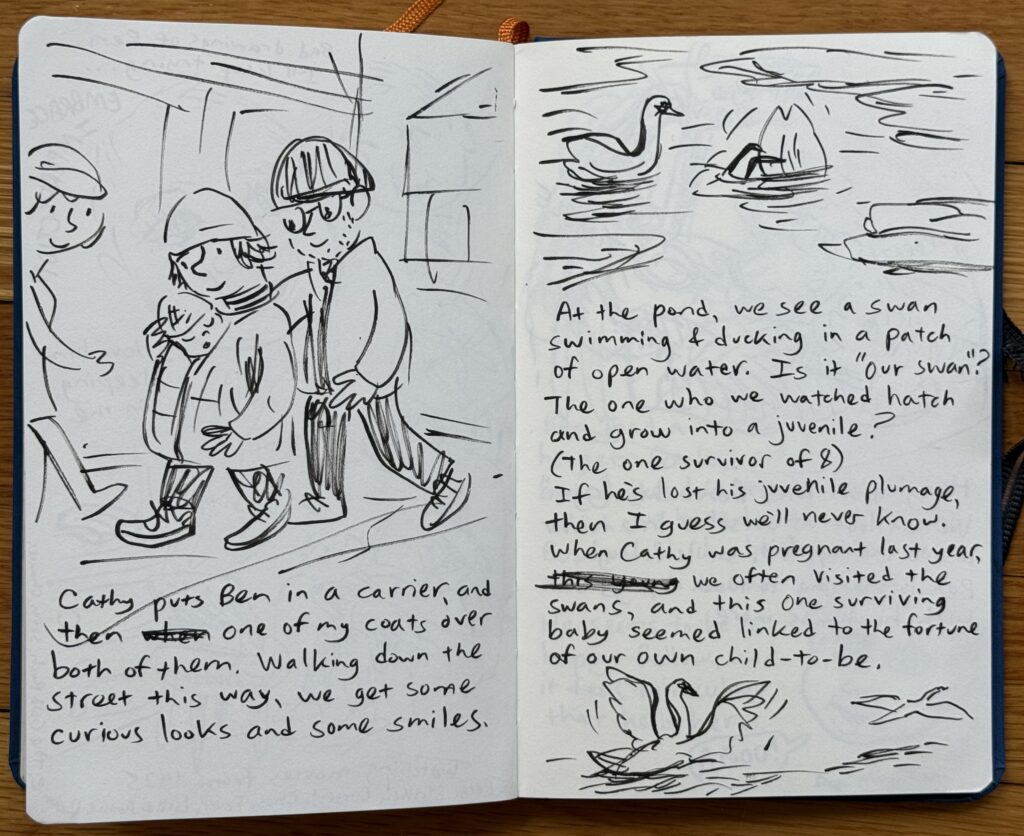 Cathy puts Ben in a carrier, and
then when one of my coats over
both of them. Walking down the
street this way, we get some
curious looks and some smiles.
At the pond, we see a swan
swimming & ducking in a patch
of open water. Is it "our swan"?
The one who we watched hatch
and grow into a juvenile?
(The one survivor of 8)
If he's lost his juvenile plumage,
then I guess we'll never know.
When Cathy was pregnant last year,
this young we often visited the
swans, and this one surviving
baby seemed linked to the fortune
of our own child-to-be.